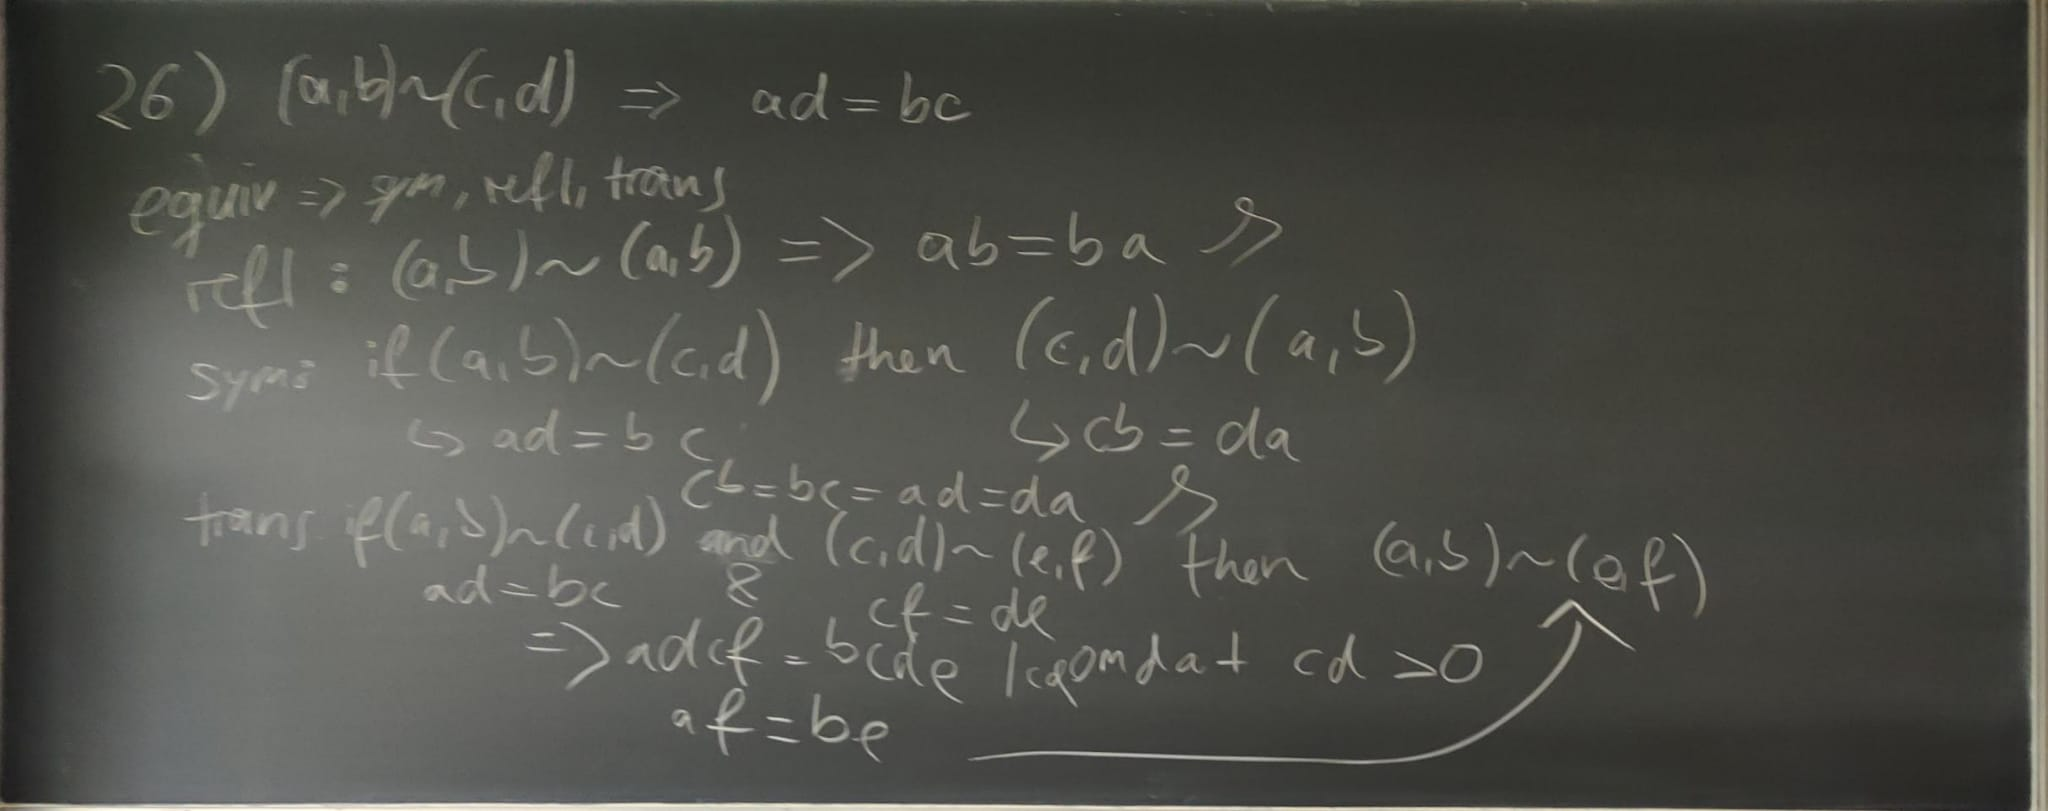 26) (a,b)~(c,d) => ad = bc
equiv => sym, refl, trans
refl : (a,b) ~ (a,b) => ab = ba
sym: if (a,b)~(c,d) then (c,d)~(a,b)
↳ ad = bc ↳ cb = da
cb = bc = ad = da
trans if (a,b)~(c,d) and (c,d)~(e,f) then (a,b)~(e,f)
ad = bc & cf = de
=> adcf = bcde omdat cd > 0
af = be